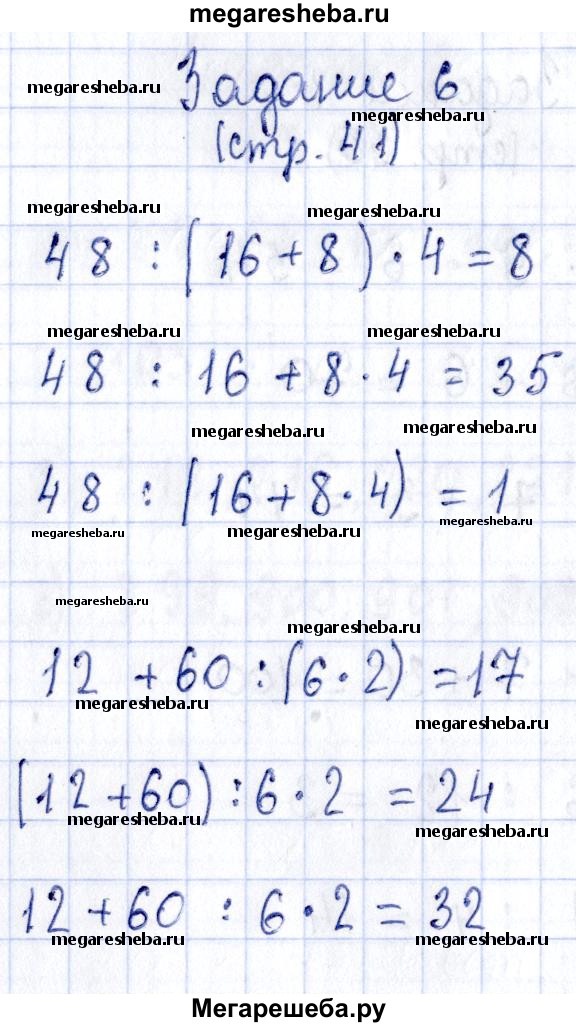 megaresheba.ru
Задание 6
megaresheba.ru
megaresheba.ru
(стр. 41)
megaresheba.ru
megaresheba.ru
48 : (16 + 8) · 4 = 8
megaresheba.ru
megaresheba.ru
48 : 16 + 8 · 4 = 35
megaresheba.ru
megaresheba.ru
48 : (16 + 8 · 4) = 1
megaresheba.ru
megaresheba.ru
megaresheba.ru
megaresheba.ru
megaresheba.ru
12 + 60 : (6 · 2) = 17
megaresheba.ru
megaresheba.ru
(12 + 60) : 6 · 2 = 24
megaresheba.ru
megaresheba.ru
12 + 60 : 6 · 2 = 32
megaresheba.ru
megaresheba.ru
Мегарешеба.ру